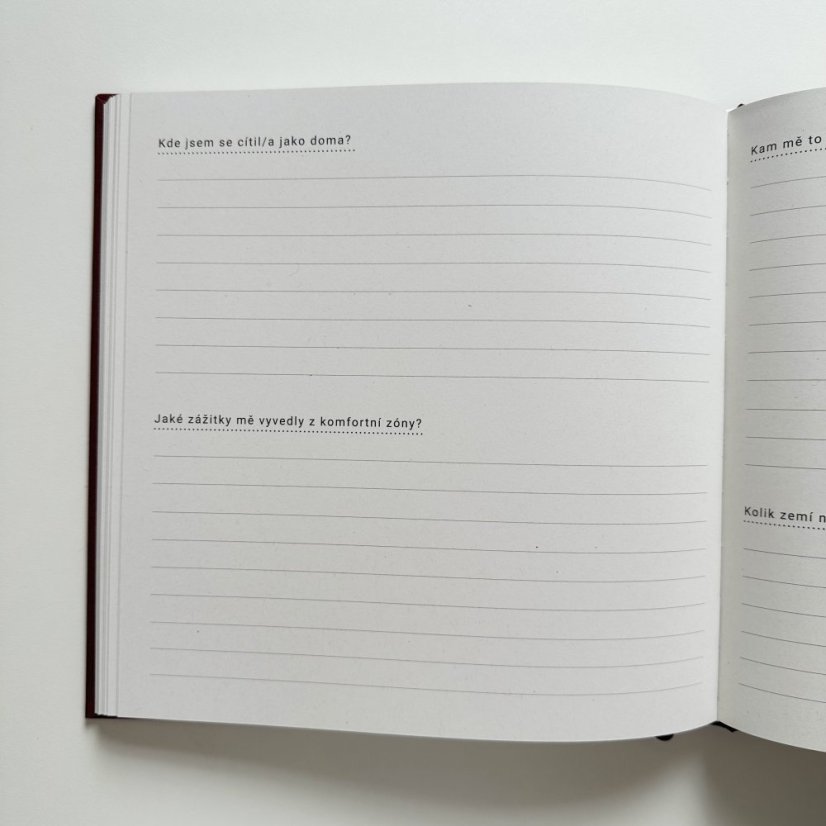 Kde jsem se cítil/a jako doma?
Jaké zážitky mě vyvedly z komfortní zóny?
Kam mě to
Kolik zemí